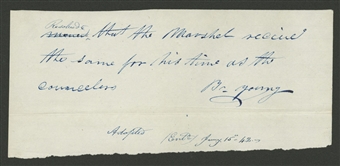 Resolved
moved that the Marshal recieve
the same for his time as the
councelors Br. Young
Adopted Jany 16th 43